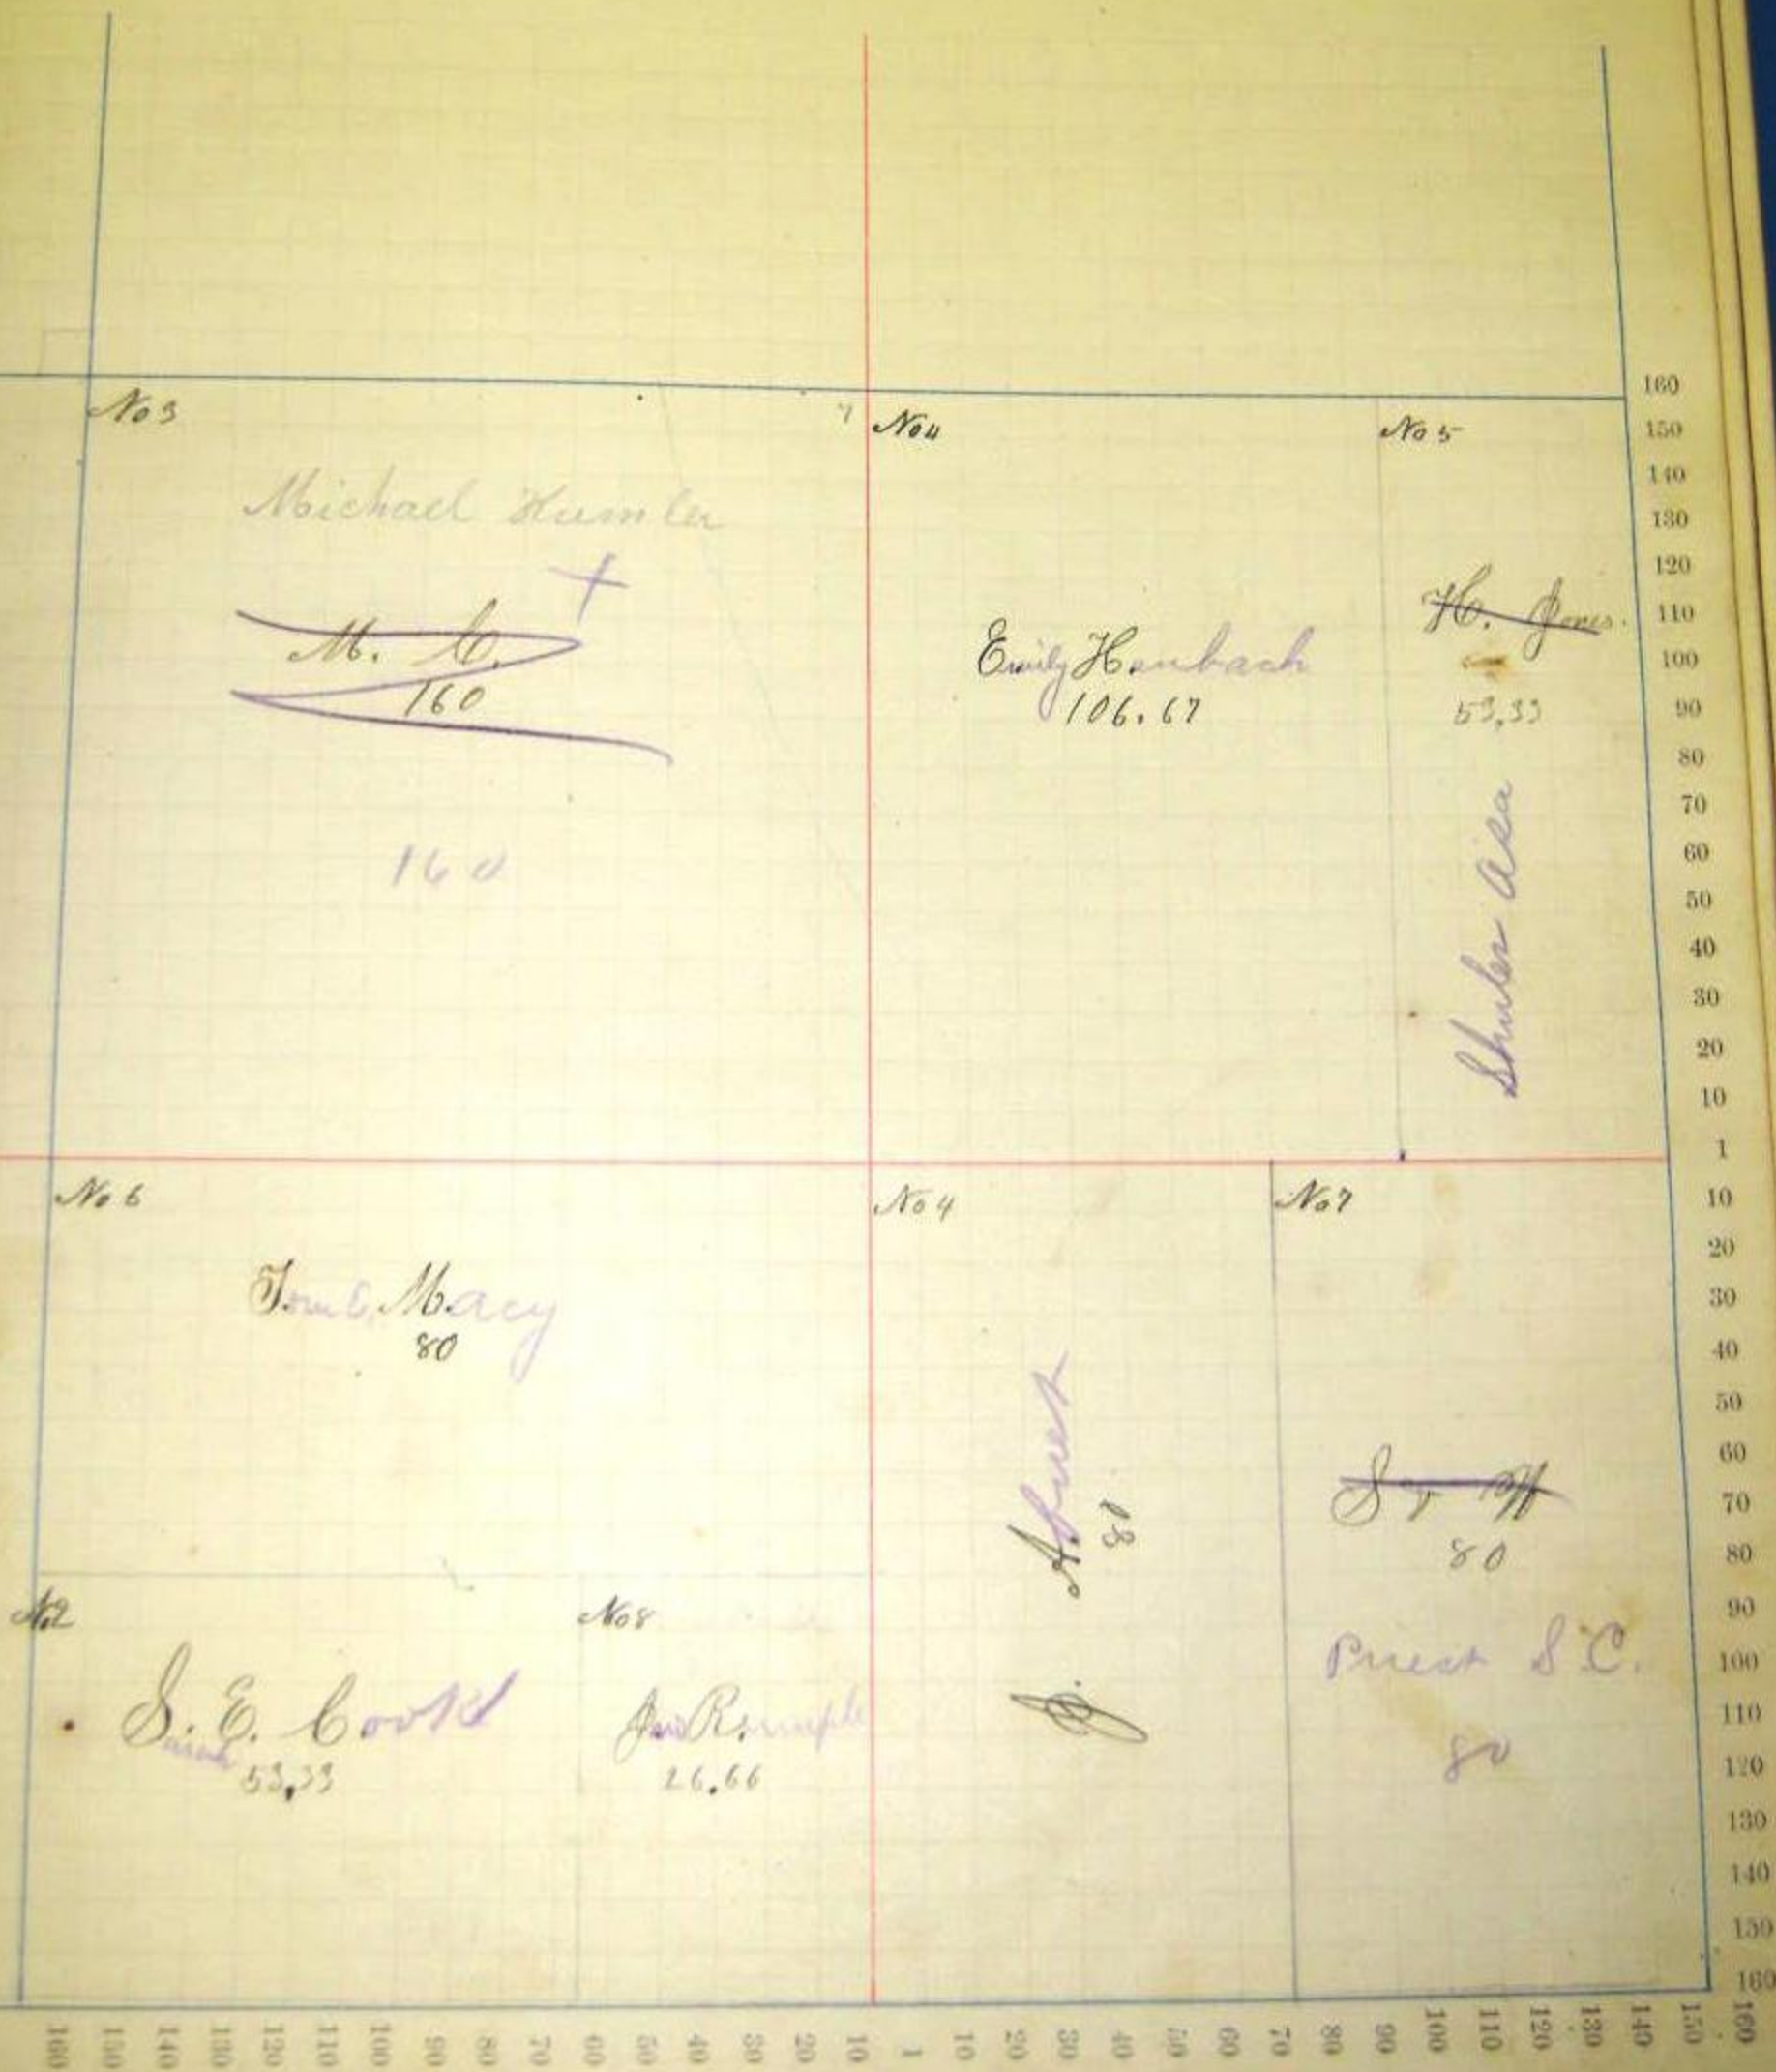 No 3
No 4
No 5
Michael Kumler
M. C.
160
160
Emily Henbach
106.67
H. Jones.
53.33
Shuler Asa
No 6
Tom C. Macy
80
No 4
A. Priest
80
No 7
80
Priest S. C.
80
No 2
S. E. Cook
53.33
No 8
26.66
160
150
140
130
120
110
100
90
80
70
60
50
40
30
20
10
1
10
20
30
40
50
60
70
80
90
100
110
120
130
140
150
160
160 150 140 130 120 110 100 90 80 70 60 50 40 30 20 10 1 10 20 30 40 50 60 70 80 90 100 110 120 130 140 150 160